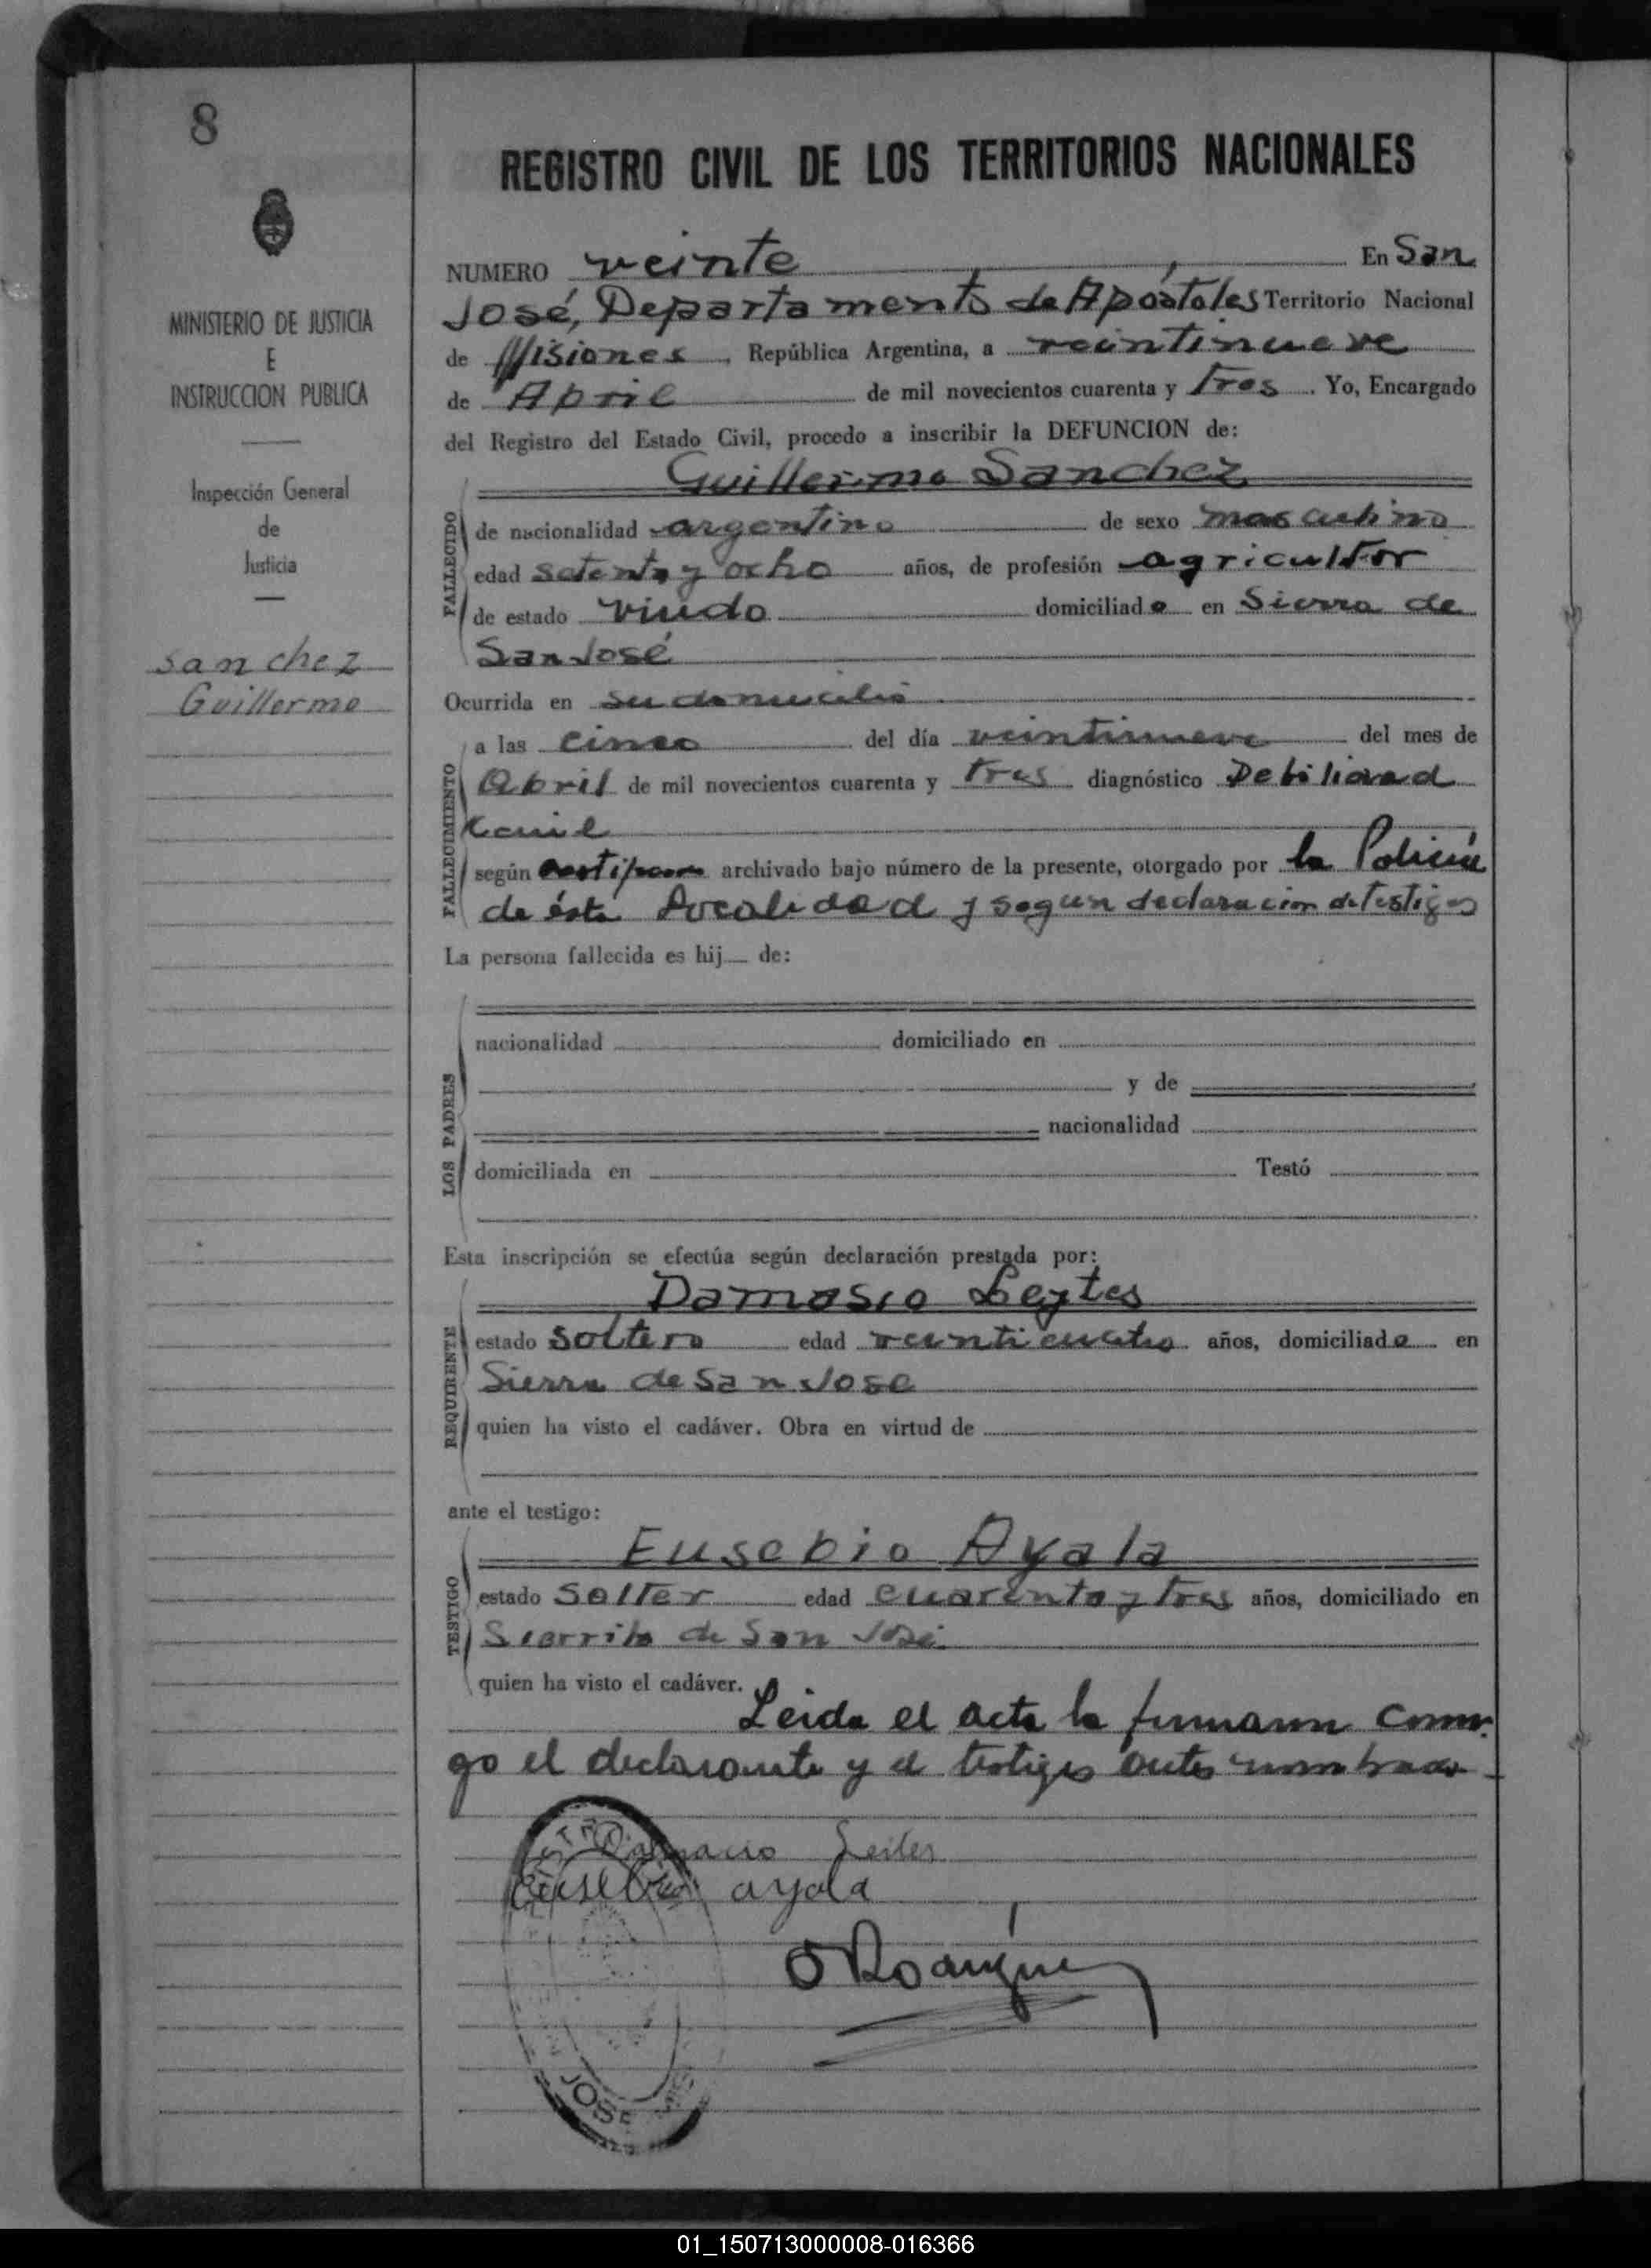 8
MINISTERIO DE JUSTICIA
E
INSTRUCCION PUBLICA
Inspección General
de
Justicia
Sanchez
Guillermo
REGISTRO CIVIL DE LOS TERRITORIOS NACIONALES
NUMERO veinte, En San
José, Departamento de Apóstoles Territorio Nacional
de Misiones, República Argentina, a veintinueve
de Abril de mil novecientos cuarenta y tres. Yo, Encargado
del Registro del Estado Civil, procedo a inscribir la DEFUNCION de:
Guillermo Sanchez
FALLECIDO
de nacionalidad argentino de sexo masculino
edad setenta y ocho años, de profesión agricultor
de estado viudo domiciliado en Sierra de
San José
Ocurrida en su domicilio
FALLECIMIENTO
a las cinco del día veintinueve del mes de
Abril de mil novecientos cuarenta y tres diagnóstico Debilidad
según archivado bajo número de la presente, otorgado por la Policía
de ésta Localidad y segun declaracion de testigos
La persona fallecida es hij de:
LOS PADRES
nacionalidad domiciliado en
y de
nacionalidad
domiciliada en Testó
Esta inscripción se efectúa según declaración prestada por:
Damasio Leytes
REQUIRENTE
estado soltero edad veinticuatro años, domiciliado en
Sierra de San José
quien ha visto el cadáver. Obra en virtud de
ante el testigo:
Eusebio Ayala
TESTIGO
estado Solter edad cuarenta y tres años, domiciliado en
Sierrita de San José
quien ha visto el cadáver.
Leida el acta la firmaron conmi-
go el declarante y el testigo antes nombrado
Damacio Leites
Eusebio ayala
O Rodriguez
JOSE
01_150713000008-016366